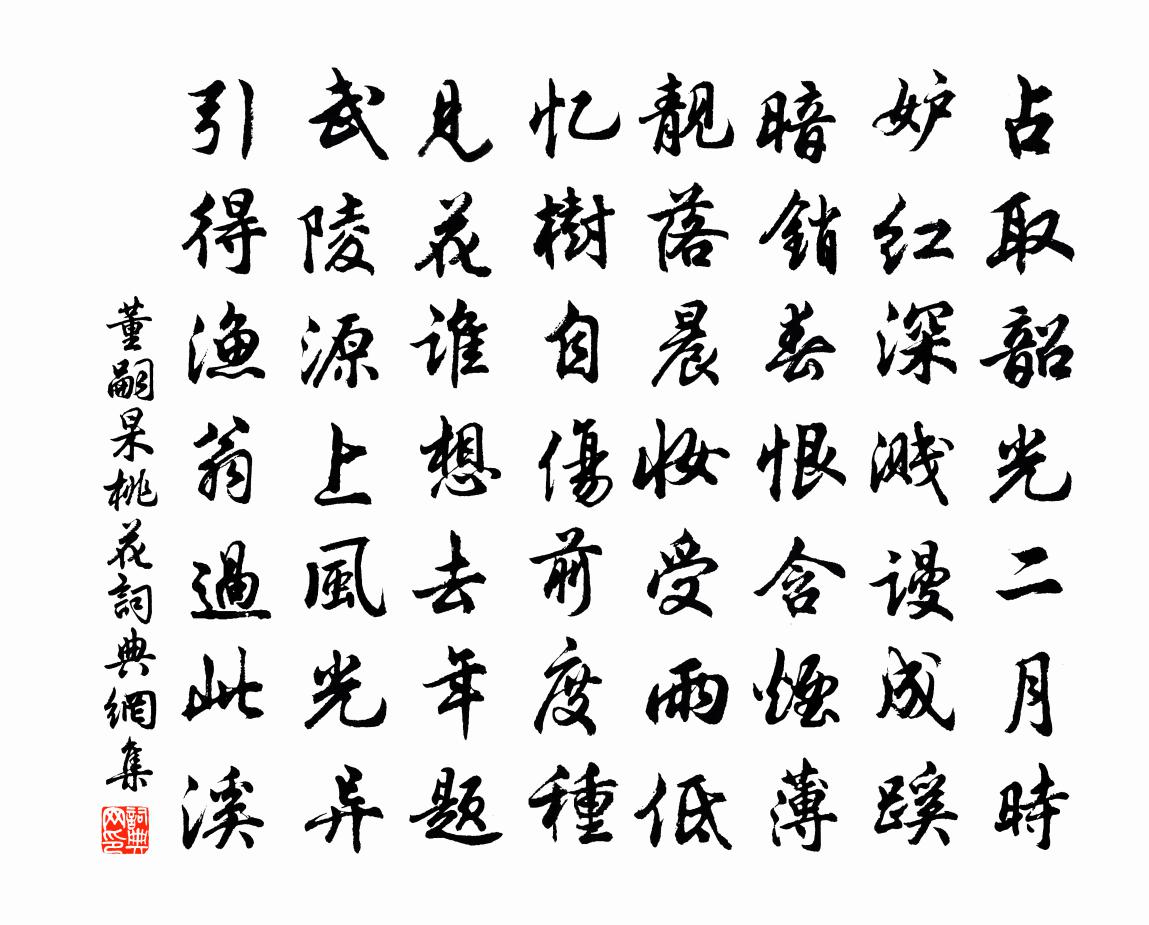 占取韶光二月時
妒红深溅谩成蹊
暗銷春恨含煙薄
靚落晨妝受雨低
忆樹自傷前度種
見花谁想去年题
武陵源上風光异
引得渔翁過此溪
董嗣杲桃花詞典網集
詞典网印